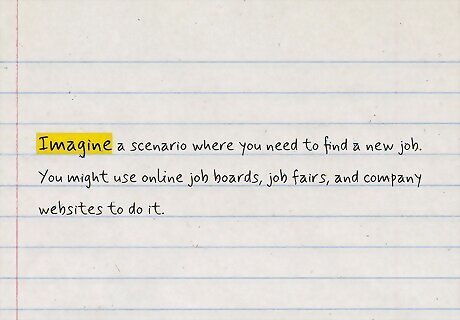 Imagine a scenario where you need to find a new job.
You might use online job boards, job fairs, and company
websites to do it.